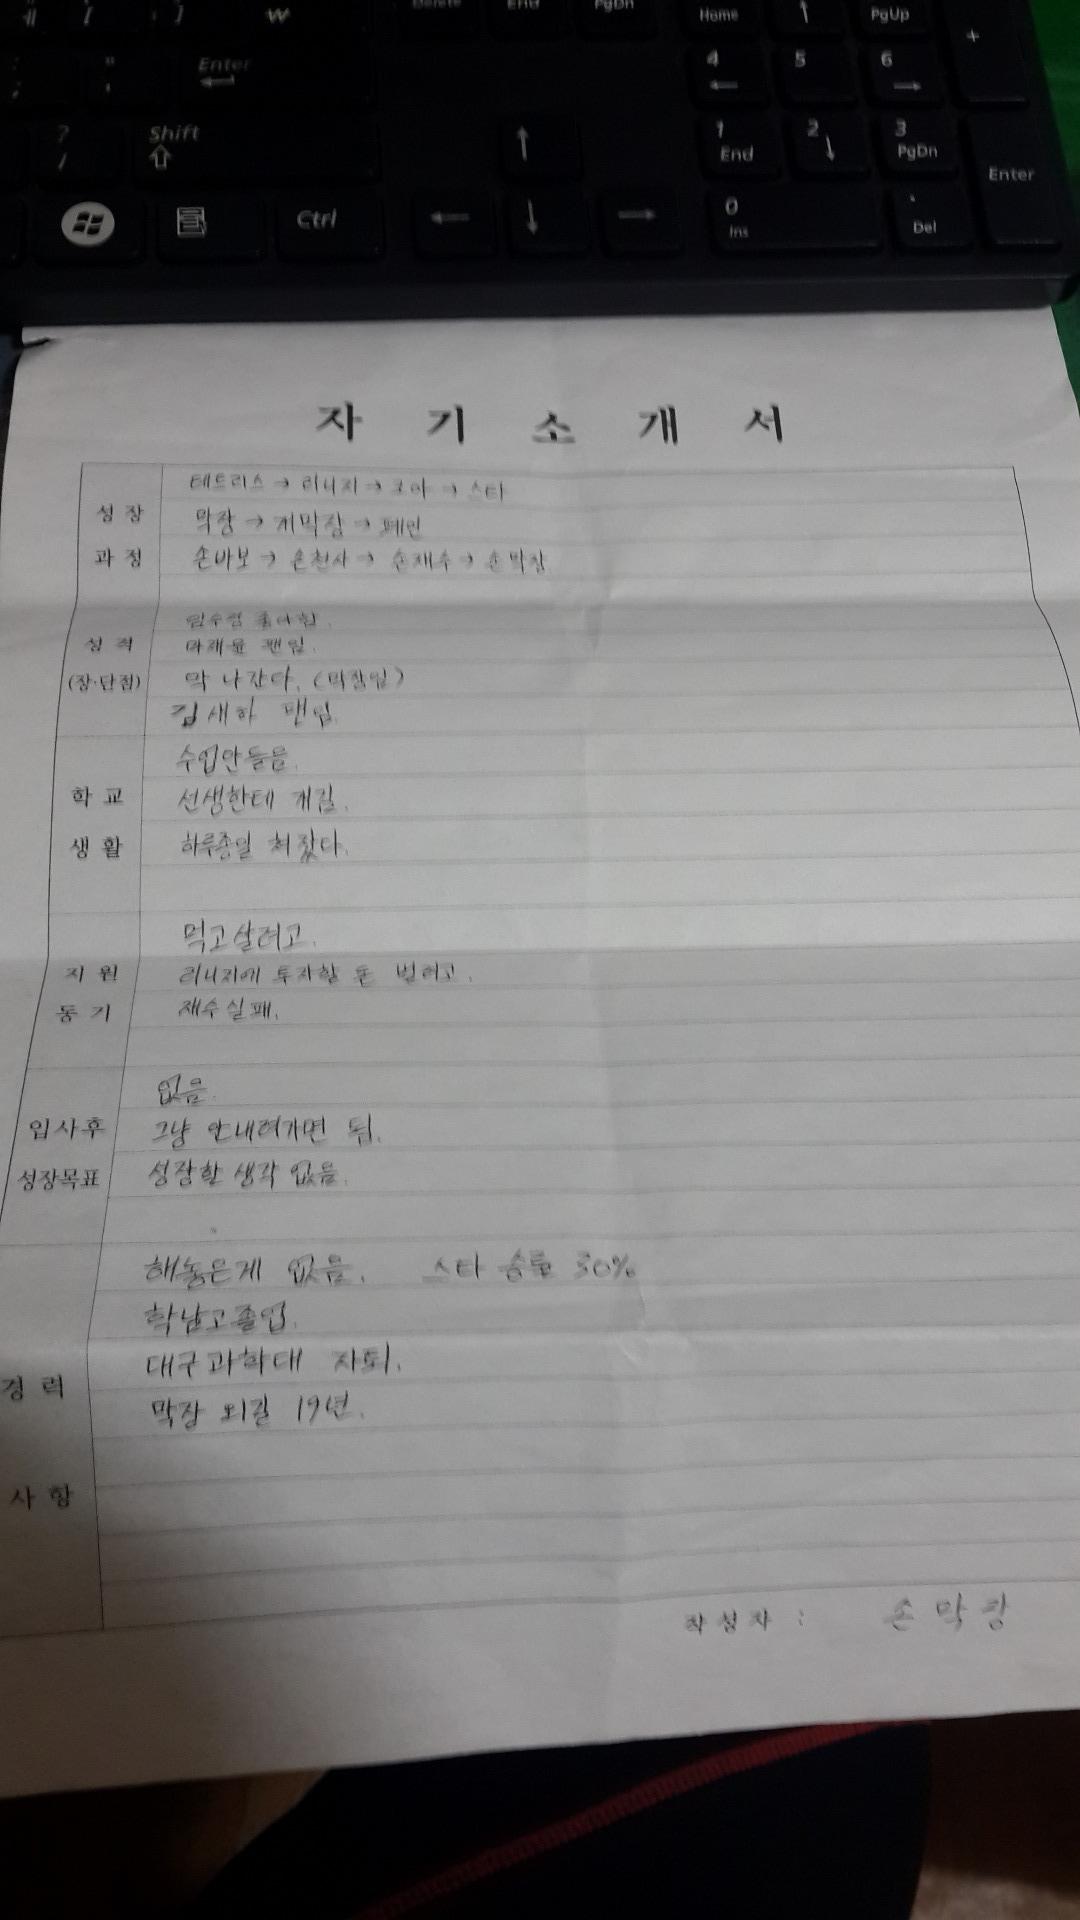 Delete End PgDn Home ↑ PgUp +
₩
Enter 4 ← 5 6 →
? / Shift ↑ 1 End 2 ↓ 3 PgDn Enter
Ctrl ← ↓ → 0 Ins . Del
자 기 소 개 서
테트리스 → 리니지 → 포아 → 스타
성장
막장 → 개막장 → 폐인
과정
손바보 → 손천사 → 손재수 → 손막장
임수정 좋아함.
성격
마재윤 팬임.
(장·단점)
막 나간다. (막장임)
김새하 팬임.
수업안들음.
학교
선생한테 개김.
생활
하루종일 쳐잤다.
먹고살려고.
지원
리니지에 투자할 돈 벌려고.
동기
재수실패.
없음.
입사후
그냥 안내려가면 됨.
성장목표
성장할 생각 없음.
해놓은게 없음. 스타 승률 30%
학남고졸업.
대구과학대 자퇴.
경력
막장 외길 19년.
사항
작성자 : 손막장